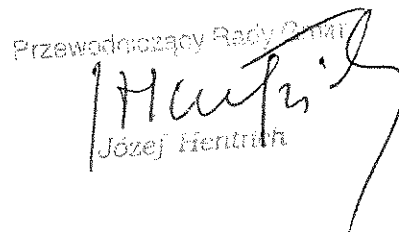 Przewodniczący Rady Gminy
Józef Hentrich